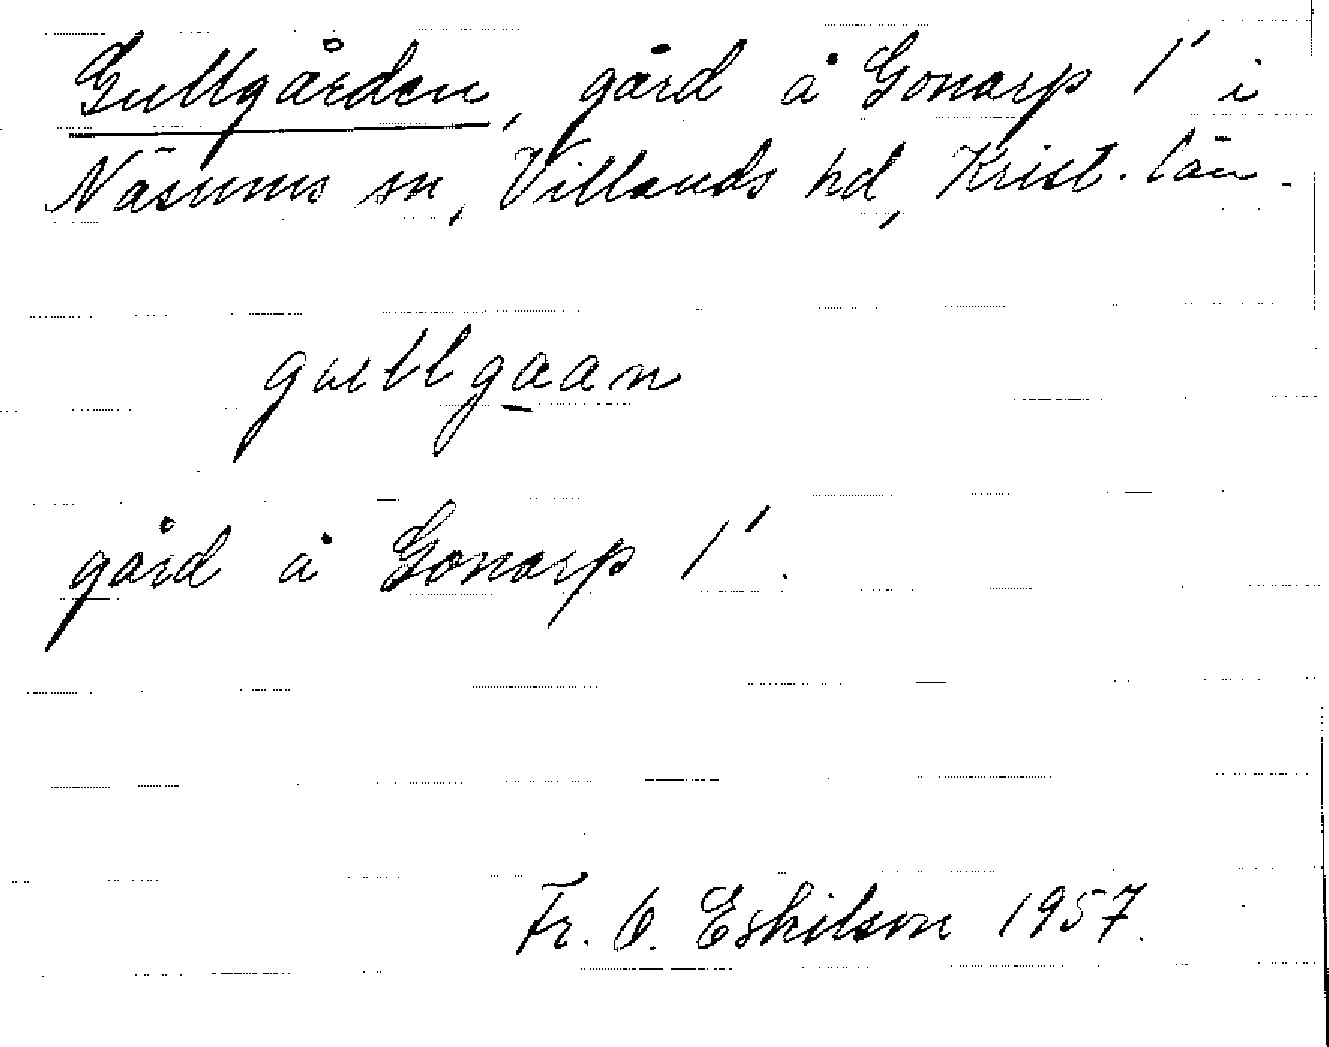 Gullgården, gård å Gonarp 1' i
Näsums sn, Villands hd, Krist. län.
gullgaan
gård å Gonarp 1'.
Fr. O. Eskilson 1957.